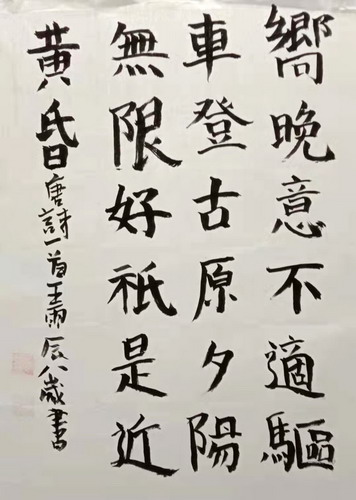 嚮晚意不適驅
車登古原夕陽
無限好祇是近
黃昏唐詩一首王雨辰八歲書